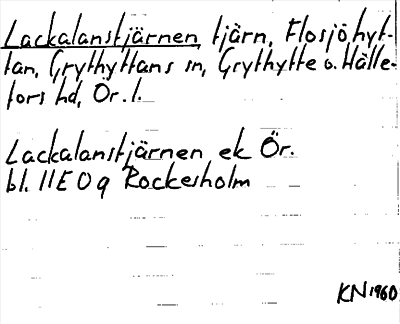 Lackalanstjärnen, tjärn, Flosjöhyt-
tan, Grythyttans sn, Grythytte o. Hälle-
fors hd, Ör. l.
Lackalanstjärnen ek Ör.
bl. 11E 0 q Rockesholm
KN 1960